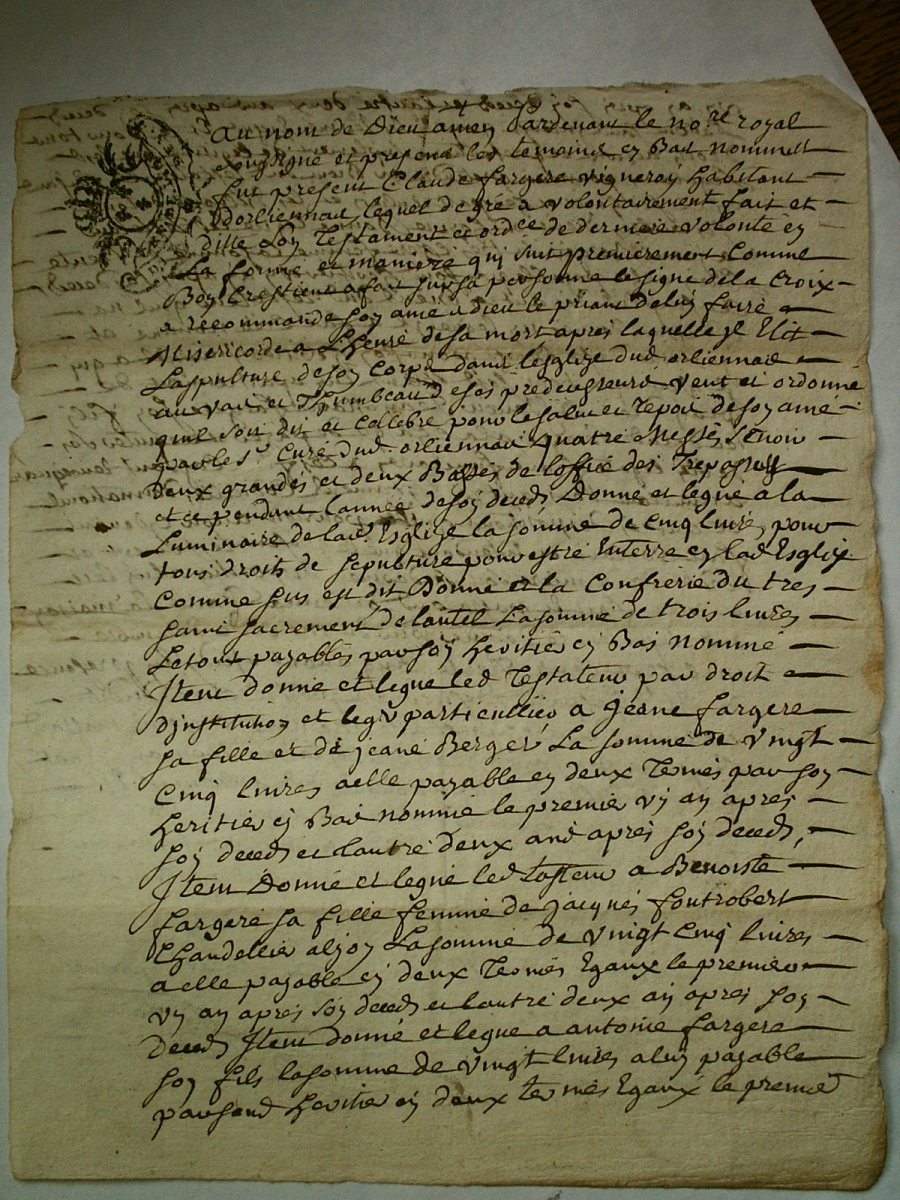 Au nom de Dieu amen Pardevant le no.re royal
Sousigné et presend les temoins cy Bas nommes
fut present Claude fargere vigneron habitant
Dorliennas, lequel de gré a volontairement fait et
ditte son Testament et ord.ce de derniere volonté en
La forme et maniere qui suit premierement comme
Bon Crestien a fait sur sa personne le signe de la Croix
a recommande son ame a dieu le priant de luy faire
Misericorde a Lheure de sa mort apres laquelle Il Elit
La spulture de son Corps dans lesglize dud orliennas
au vas et Thumbeau de ses predecesseurs veut et ordonne
quil soit dit et celebre pour le salut et repos de son ame
par le s.r Curé dud. orliennas quatre Messes scavoir
deux grandes et deux Basses de loffice des Trepasses
et ce pendant lannee de son deceds, Donne et legue a la
Luminaire de lad. Esglize la somme de cinq livres pour
tous droits de sepulture pour estre Enterre en lad Esglize
comme sus est dit Donne et la confrerie du tres
saint sacrement de lautel La somme de trois livres
Le tout payables par son heritier cy Bas nommé
Item donne et legue led Testateur par droit
dinstitution et legs particullier a Jeane fargere
sa fille et de jeane Berger, La somme de vingt
cinq livres a elle payable en deux termes par son
heritier cy Bas nommé le premier un an apres
son deceds et lautre deux ans apres son deceds,
Item Donne et legue led Tasteur a Benoiste
fargere sa fille femme de jacques fontrobert
Chandellier a lyon La somme de vingt cinq livres
a elle payable en deux termes Egaux le premier
un an apres son deceds et lautre deux an apres son
deceds Item donne et legue a antoine fargere
son fils la somme de vingt livres a luy payable
par sond heritier en deux termes Egaux le premier